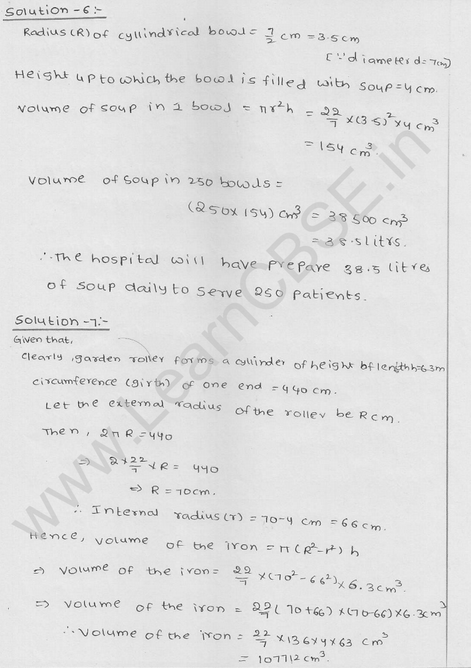 Solution-6:-
Radius(R) of cyllindrical bowl = 7/2 cm = 3.5cm
[∵ diameter d=7cm]
Height up to which the bowl is filled with soup=4cm.
Volume of soup in 1 bowl = πr²h = 22/7 ×(3.5)²×4 cm³
= 154 cm³.
volume of soup in 250 bowls =
(250×154) cm³ = 38500 cm³
= 38.5 litrs.
∴ The hospital will have prepare 38.5 litres
of soup daily to serve 250 patients.
Solution-7:-
Given that,
Clearly, garden roller forms a cylinder of height of length h=63m
circumference (girth) of one end = 440 cm.
Let the external radius of the roller be R cm.
Then, 2πR=440
⇒ 2×22/7×R= 440
⇒ R=70cm.
∴ Internal radius(r) = 70-4 cm = 66cm.
Hence, volume of the iron = π(R²-r²) h
⇒ volume of the iron= 22/7 ×(70²-66²)×6.3cm³.
⇒ volume of the iron = 22/7(70+66)×(70-66)×6.3cm³
∴ Volume of the iron = 22/7 ×136×4×63 cm³
= 107712 cm³.
www.LearnCBSE.in